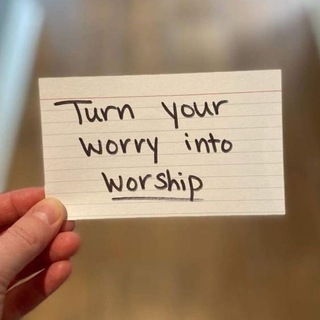 Turn your
worry into
worship